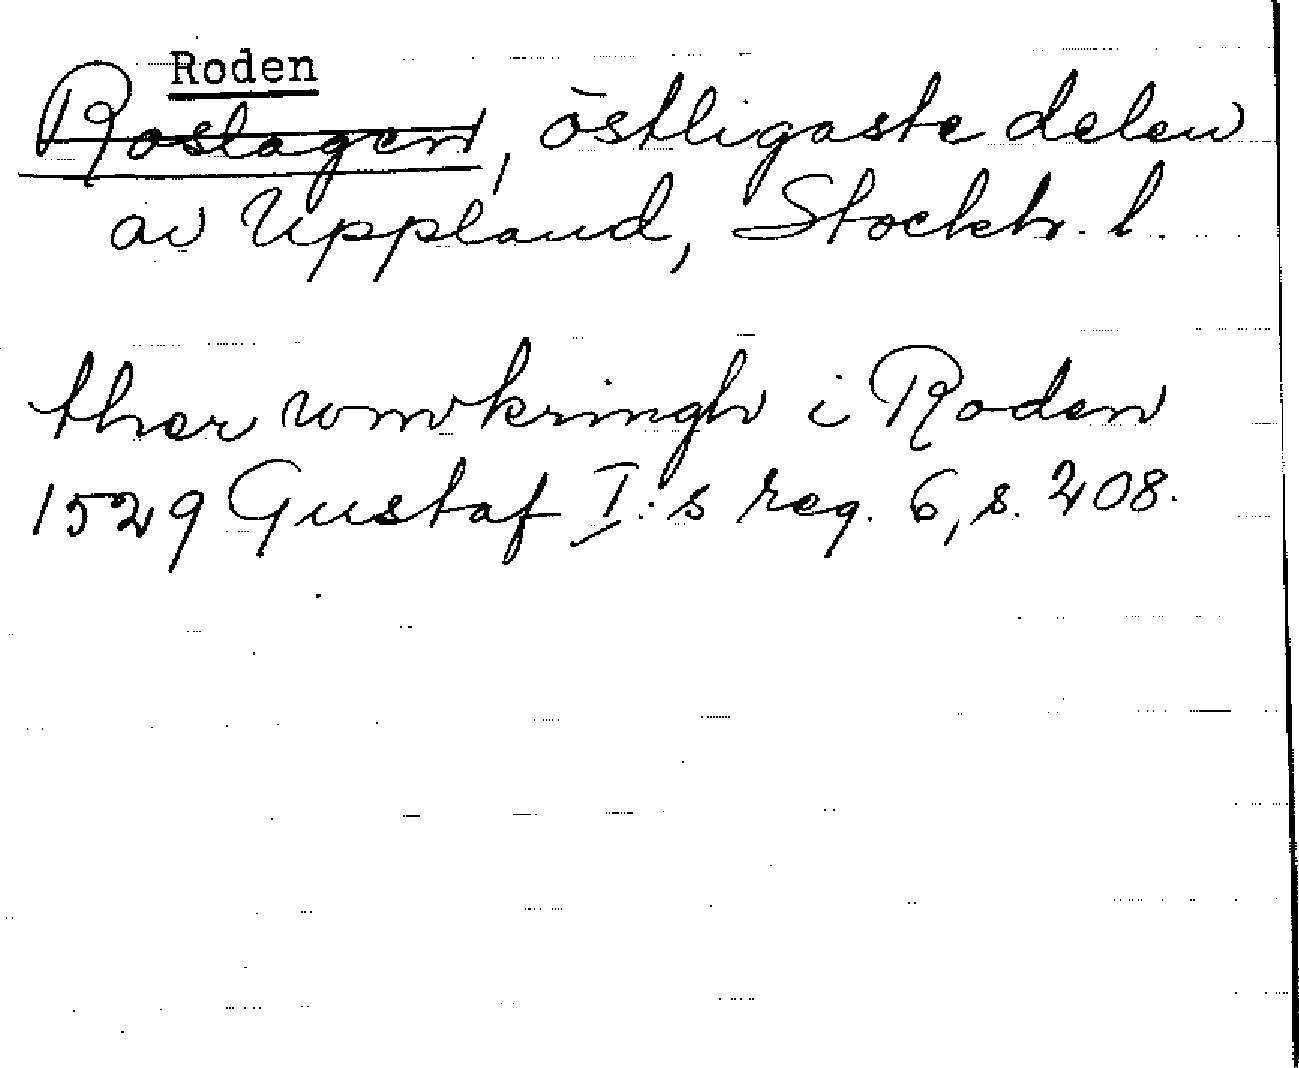 Roden
Roslagen, östligaste delen
av Uppland, Stockh. l.
ther womkringh i Roden
1529 Gustaf I:s reg. 6, s. 208.